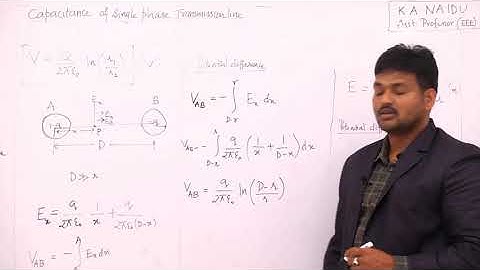 Capacitance of Single phase Transmission line
K.A NAIDU
Asst Professor (EEE)
V = q/2πε₀ ln(r₁/r₂)
A
B
D
D ≫ r
Eₓ = q/2πε₀ · 1/x + q/2πε₀(D-x)
V_AB = -∫ Eₓ dx
Potential difference
V_AB = -∫_{D-r}^{r} Eₓ dx
V_AB = -∫_{D-r}^{r} q/2πε₀ (1/x + 1/(D-x)) dx
V_AB = q/2πε₀ ln((D-r)/r)
E =